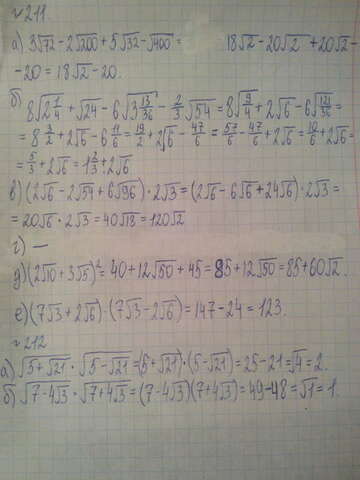 №211.
а) 3√72 - 2√200 + 5√32 - √400 = 18√2 - 20√2 + 20√2 -
- 20 = 18√2 - 20.
б) 8√2 1/4 + √24 - 6√3 13/36 - 2/3√54 = 8√9/4 + 2√6 - 6√121/36 =
= 8 3/2 + 2√6 - 6 11/6 = 19/2 + 2√6 - 47/6 = 57/6 - 47/6 + 2√6 = 10/6 + 2√6 =
= 5/3 + 2√6 = 1 2/3 + 2√6
в) (2√6 - 2√54 + 6√96) · 2√3 = (2√6 - 6√6 + 24√6) · 2√3 =
= 20√6 · 2√3 = 40√18 = 120√2
г) —
д) (2√10 + 3√5)² = 40 + 12√50 + 45 = 85 + 12√50 = 85 + 60√2.
е) (7√3 + 2√6) · (7√3 - 2√6) = 147 - 24 = 123.
№212
а) √5+√21 · √5-√21 = (5+√21) · (5-√21) = 25 - 21 = √4 = 2.
б) √7-4√3 · √7+4√3 = (7-4√3)(7+4√3) = 49 - 48 = √1 = 1.